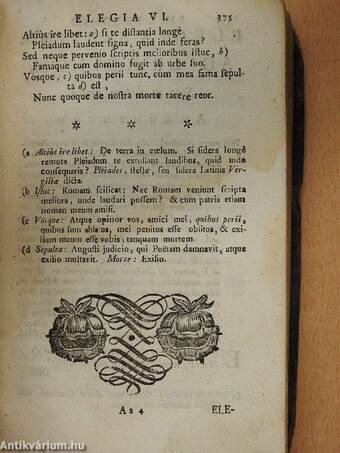 ELEGIA VI. 375
Altiùs ire libet: a) si te distantia longè
Pleiadum laudent signa, quid inde feras?
Sed neque pervenio scriptis melioribus istuc, b)
Famaque cum domino fugit ab urbe suo.
Vosque, c) quibus perii tunc, cum mea fama sepul-
ta d) est,
Nunc quoque de nostra morte tacere reor.
(a Altiùs ire libet: De terra in cælum. Si sidera longè
remota Pleiadum te extollant laudibus, quid inde
consequaris? Pleiades, stellæ, seu sidera Latinis Ver-
giliæ dicta.
(b Istuc: Romam scilicet: Nec Romam veniunt scripta
meliora, unde laudari possem? & cum patria etiam
nomen meum amisi.
(c Vosque: Atque opinor vos, amici mei, quibus perii,
quibus sum ablatus, mei penitus esse oblitos, & exi-
lium meum esse vobis, tanquam mortem
(d Sepulta: Augusti judicio, qui Poëtam damnavit, atque
exilio multavit. Morte: Exilio.
Aa 4 ELE-
Antikvárium.hu